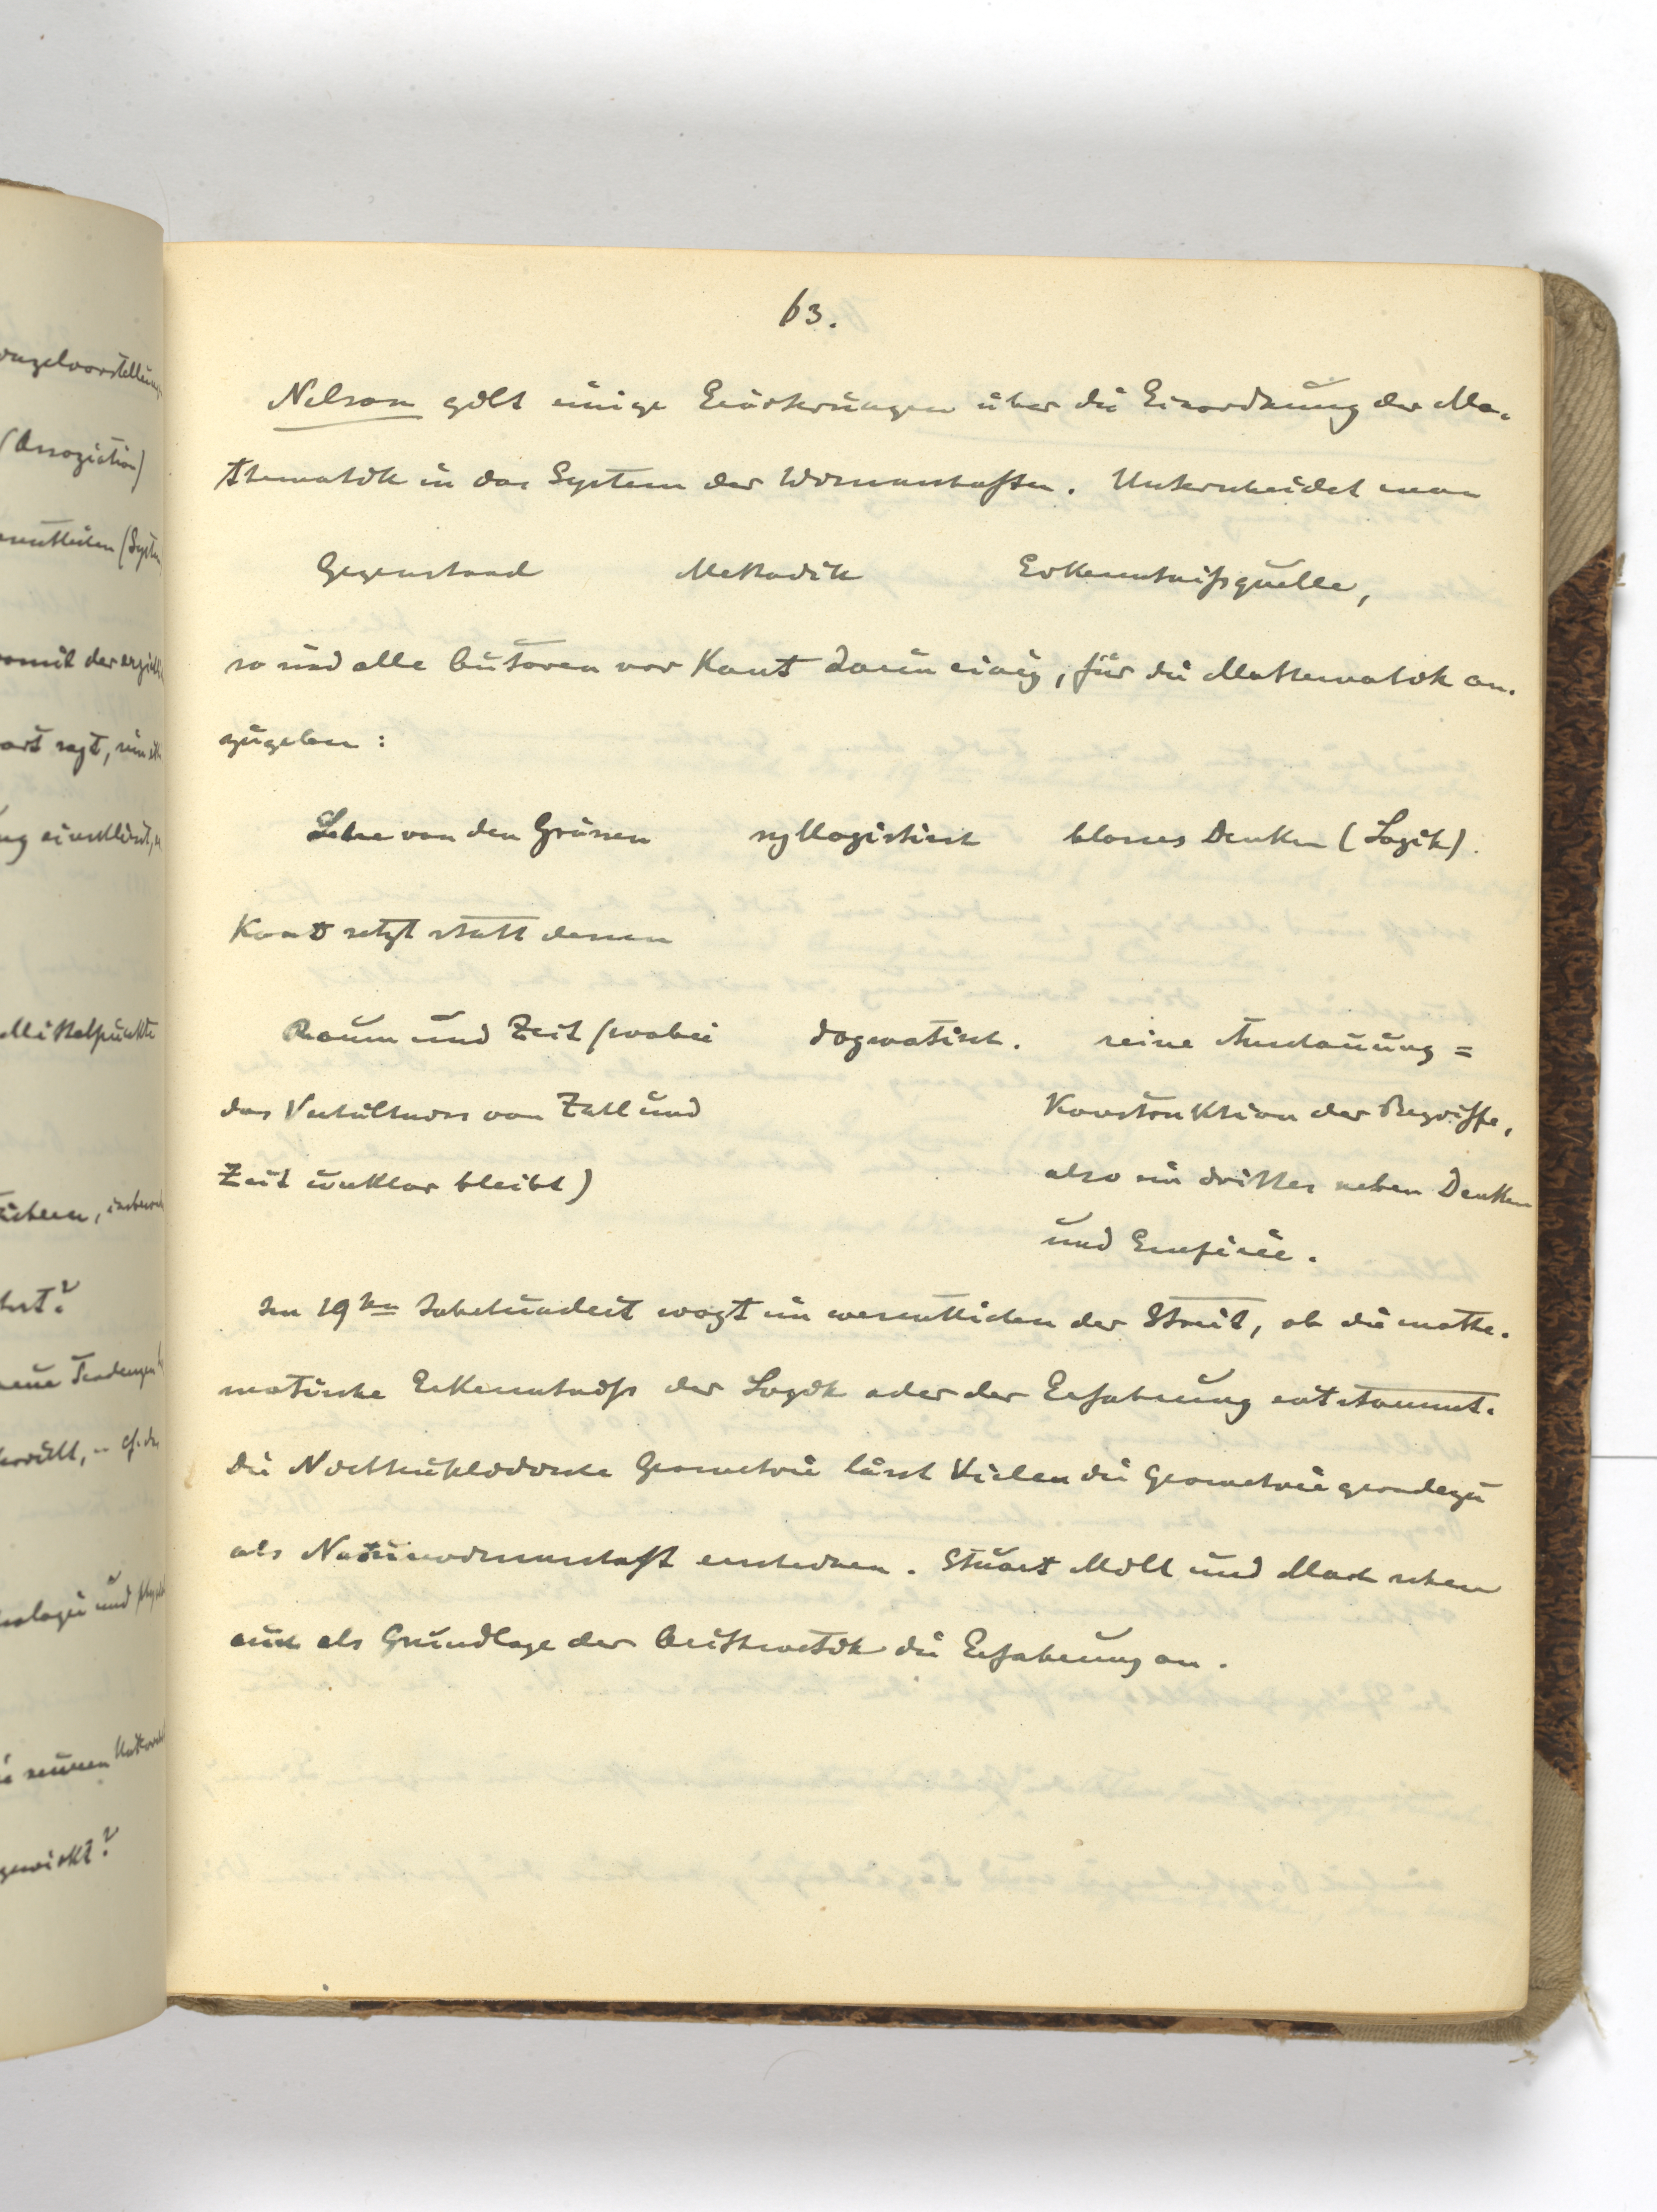 63.
Nelson gibt einige Erörterungen über die Einordnung der Ma-
thematik in das System der Wissenschaften. Unterscheidet man
Gegenstand Methodik Erkenntnißquelle,
so sind alle Autoren vor Kant darin einig, für die Mathematik an-
zugeben:
Lehre von den Grössen syllogistisch blosses Denken (Logik).
Kant setzt statt dessen
Raum und Zeit (wobei dogmatisch. reine Anschauung =
das Verhältniss von Zahl und Konstruktion der Begriffe,
Zeit unklar bleibt) also ein drittes neben Denken
und Empirie.
Im 19ten Jahrhundert wogt im wesentlichen der Streit, ob die mathe-
matische Erkenntniß der Logik oder der Erfahrung entstammt.
Die Nichteuklidische Geometrie lässt Vielen die Geometrie geradezu
als Naturwissenschaft erscheinen. Stuart Mill und Mach sehen
auch als Grundlage der Arithmetik die Erfahrung an.
(Assoziation)
somit der
sagt,
Mittelpunkte
neue Tendenzen
und
gewirkt?